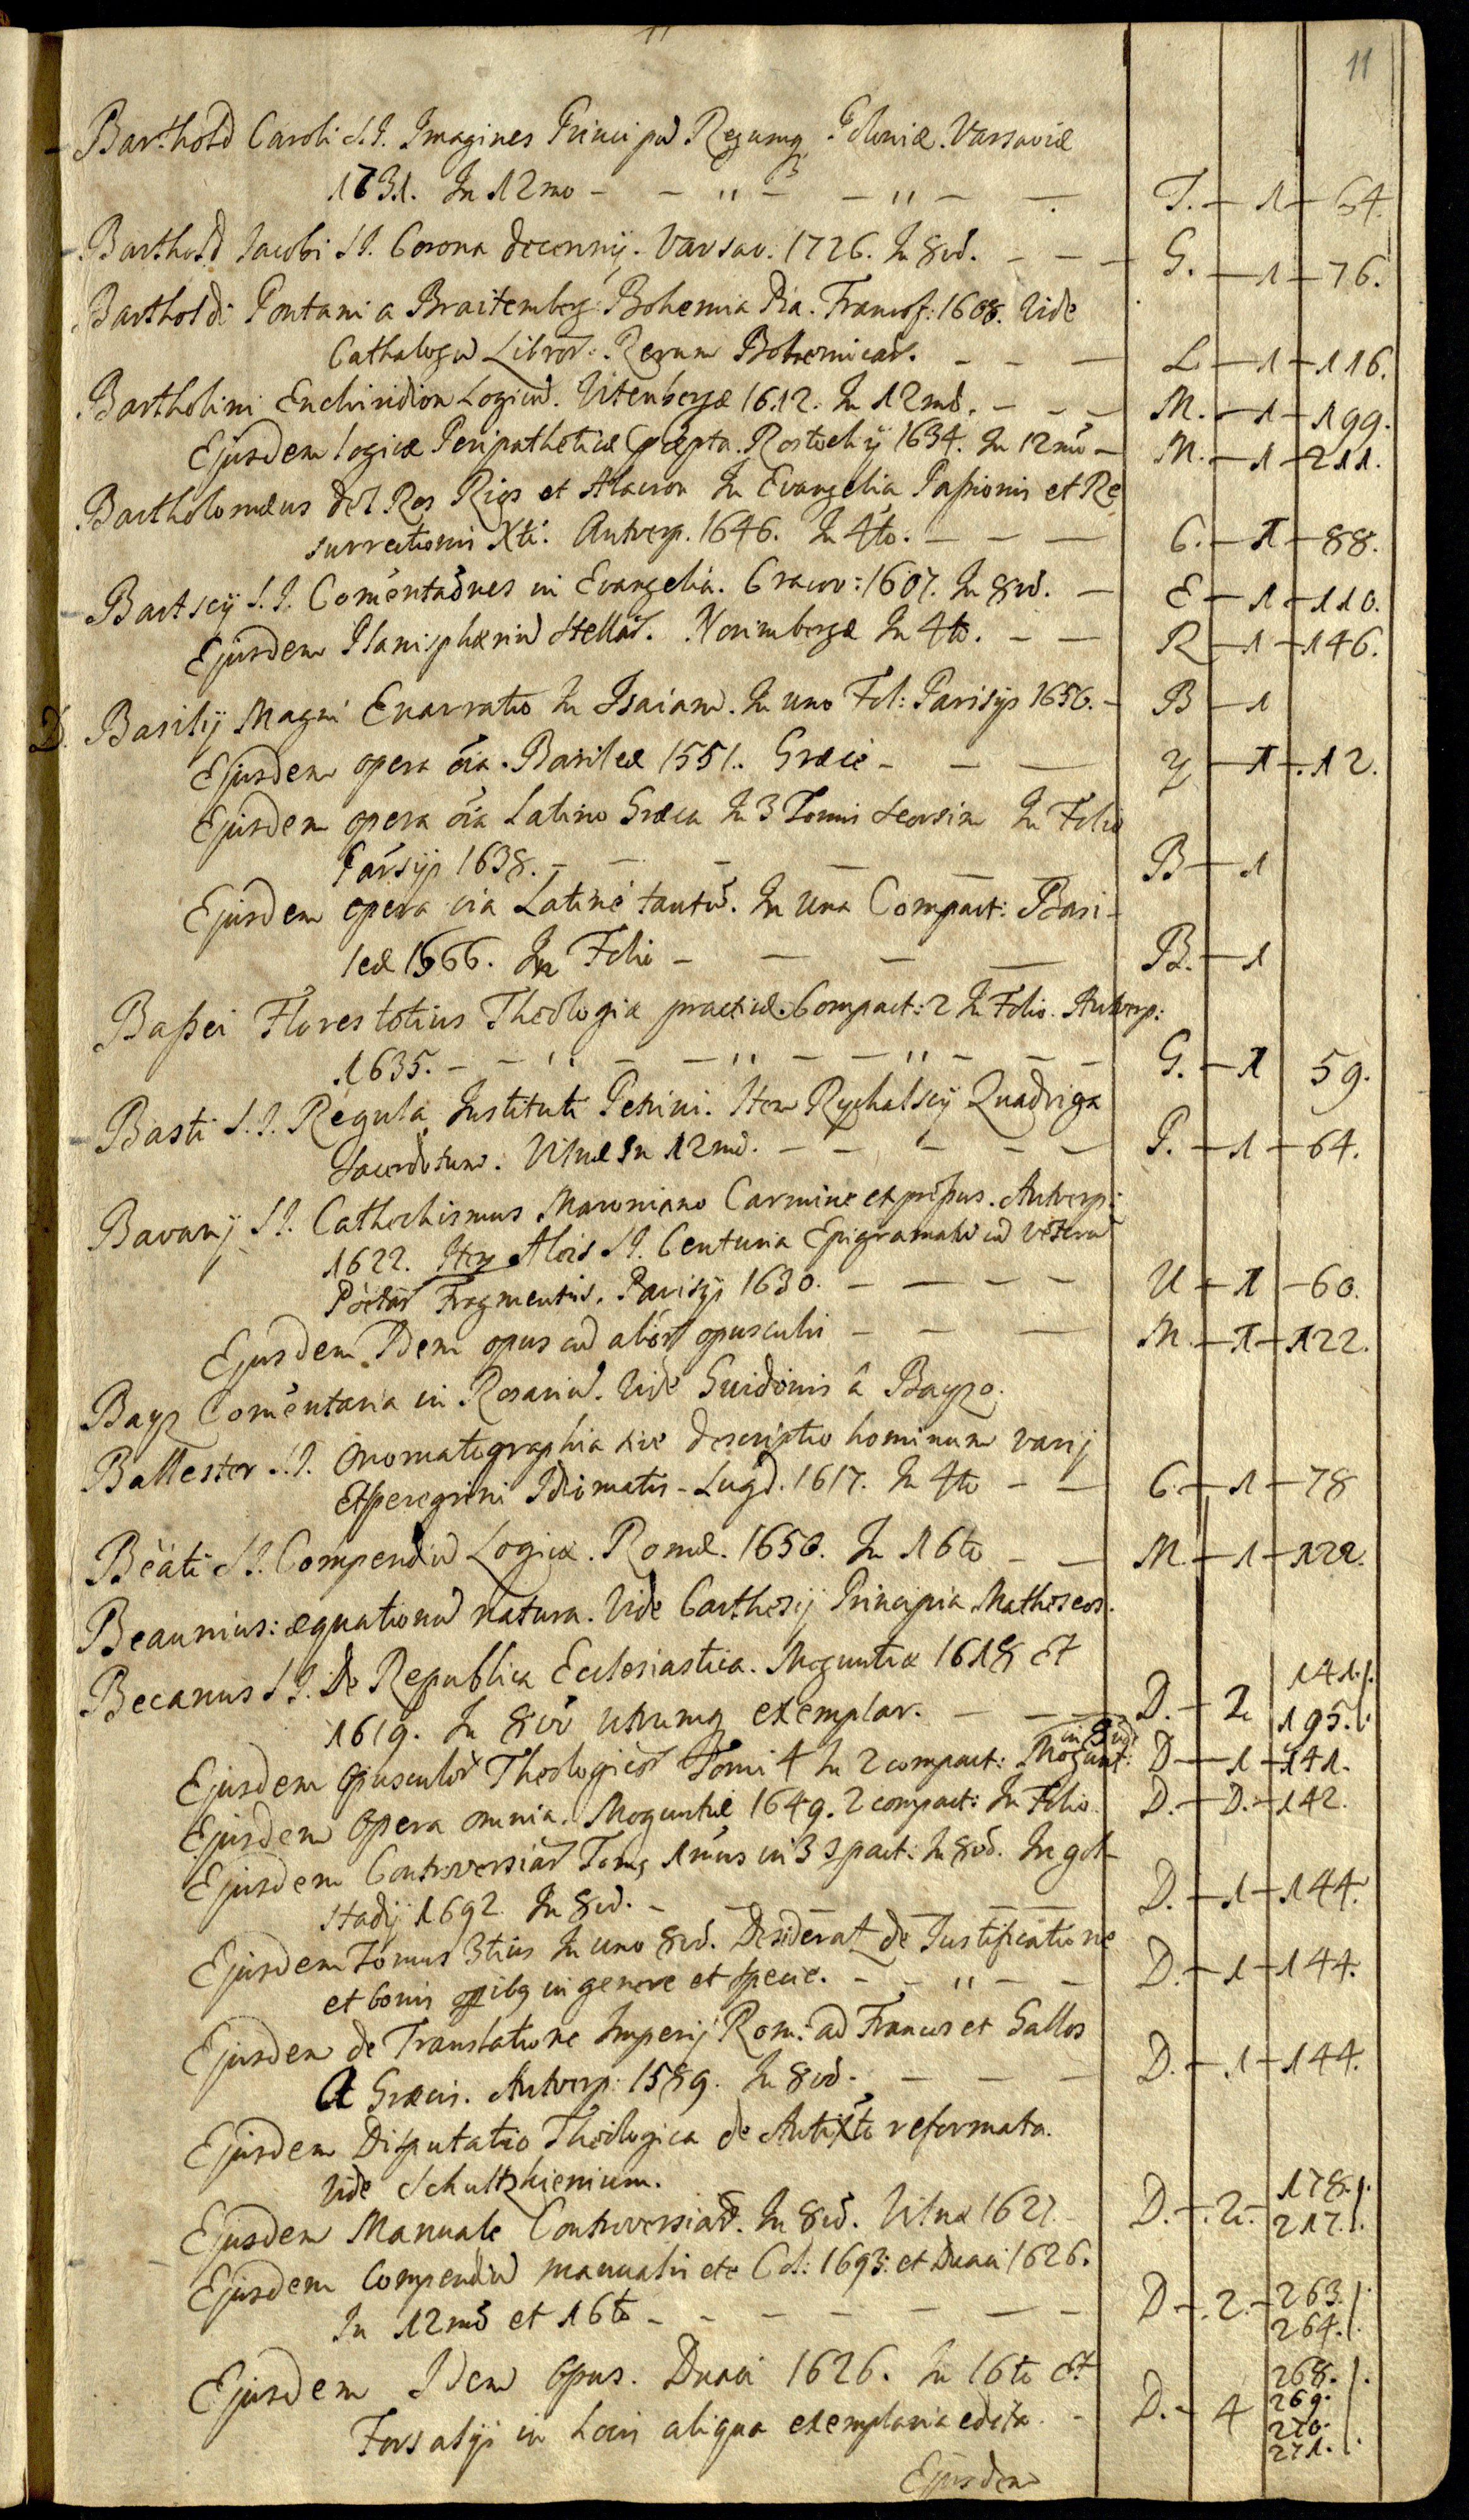 11
Barthold Caroli S.I. Imagines Principū Regumq Poloniæ. Varsaviæ
1731. In 12mo - - " - - " - - I. - 1 - 64.
Barthold Jacobi S.I. Corona decennij. Varsav. 1726. In 8vō. - - - G. - 1 - 76.
Bartholdi Pontani a Braitemberg: Bohemia Pia. Francof: 1608. Vide
Cathalogū Libror: Rerum Bohemicar̄. - - - L - 1 - 116.
Bartholini Enchiridion Logicū. Vitenbergæ 1612. In 12mō. - - - M. - 1 - 199.
Ejusdem logicæ Peripatheticæ Præcepta. Rostochij 1634. In 12mō - M. - 1 - 211.
Bartholomæus del Ros Rios et Alarcon In Evangelia Paßionis et Re
surrectionis Xti. Antverp. 1646. In 4to. - - - C. - 1 - 88.
Bartscij S.I. Comentaōnes in Evangelia. Cracov: 1607. In 8vō. - E - 1 - 110.
Ejusdem Planisphæriū Stellar̄. Norimbergæ In 4to. - - R - 1 - 146.
D. Basilij Magni Enarratio In Isaiam. In uno Fol: Parisijs 1656. - B - 1
Ejusdem opera oīa. Basileæ 1551. Græcè - - - Y - 1 - 12.
Ejusdem opera oīa Latino Græca In 3 Tomis seorsim In Folio
Parisijs 1638. - - - - - B - 1
Ejusdem opera oīa Latinè tantū. In una Compact: Basi-
leæ 1566. In Folio - - - - B. - 1
Baßei Flores totius Theologiæ practicæ. Compact: 2 In Folio. Antverp:
1635. - - " - - " - - " - - - G. - 1 59.
Basti S.I. Regula Instituti Petrini. Item Rychalscij Quadriga
Sacerdotum. Vilnæ In 12mō. - - - - - P. - 1 - 64.
Bavarij S.I. Cathechismus Maroniano Carmine expressus. Antverp:
1622. Item Alois S.I. Centuria Epigramatū cū veterū
Poētar̄ Fragmentis. Parisijs 1630. - - - - U - 1 - 60.
Ejusdem Idem opus cū alior̄ opusculis - - - M. - 1 - 122.
Bayz Comentaria in Rosariū. Vide Guidonis â Bayzo.
Ballester S.I. Onomatographia sive descriptio hominum varij
et peregrini Idiomatis - Lugd. 1617. In 4to - - C. - 1 - 78
Beati S.I. Compendiū Logicæ. Romæ. 1650. In 16to - - M. - 1 - 122.
Beaunius: æquationū natura. Vide Carthesij Principia Matheseos.
Becanus S.I. De Republica Ecclesiastica. Moguntiæ 1618 et 141.
1619. In 8vō utrumq exemplar. - - - D. - 2 195.
Ejusdem Opusculor̄ Theologicor̄ Tomi 4 In 2 compact: Mogunt: in 8vō D - 1 - 141.
Ejusdem Opera omnia. Moguntiæ 1649. 2 compact: In Folio D. - D. - 142.
Ejusdem Controversiar̄ Tomq 1mus in 3 9pact: In 8vō. Ingol-
stadij 1692. In 8vō. - - - - D. - 1 - 144.
Ejusdem Tomus 3tius In uno 8vō. Desiderat de Iustificatione
et bonis opibq in genere et specie. - - " - - D. - 1 - 144.
Ejusdem de Translatione Imperij Rom: ad Francos et Gallos
A Græcis. Antverp: 1589. In 8vō. - - - D. - 1 - 144.
Ejusdem Disputatio Theologica de AntiXto reformata.
Vide Schultzkienium.
Ejusdem Manuale Controversiar̄. In 8vō. Vilnæ 1627. - D. - 2. - 178. 217.
Ejusdem Compendiū manualis etc Col: 1693: et Duaci 1626.
In 12mō et 16to - - - - - - - D - 2. - 263. 264.
Ejusdem Idem opus. Duaci 1626. In 16to et 268.
Fors alijs in Locis aliqua exemplaria edita. - D. - 4 269. 270. 271.
Ejusdem